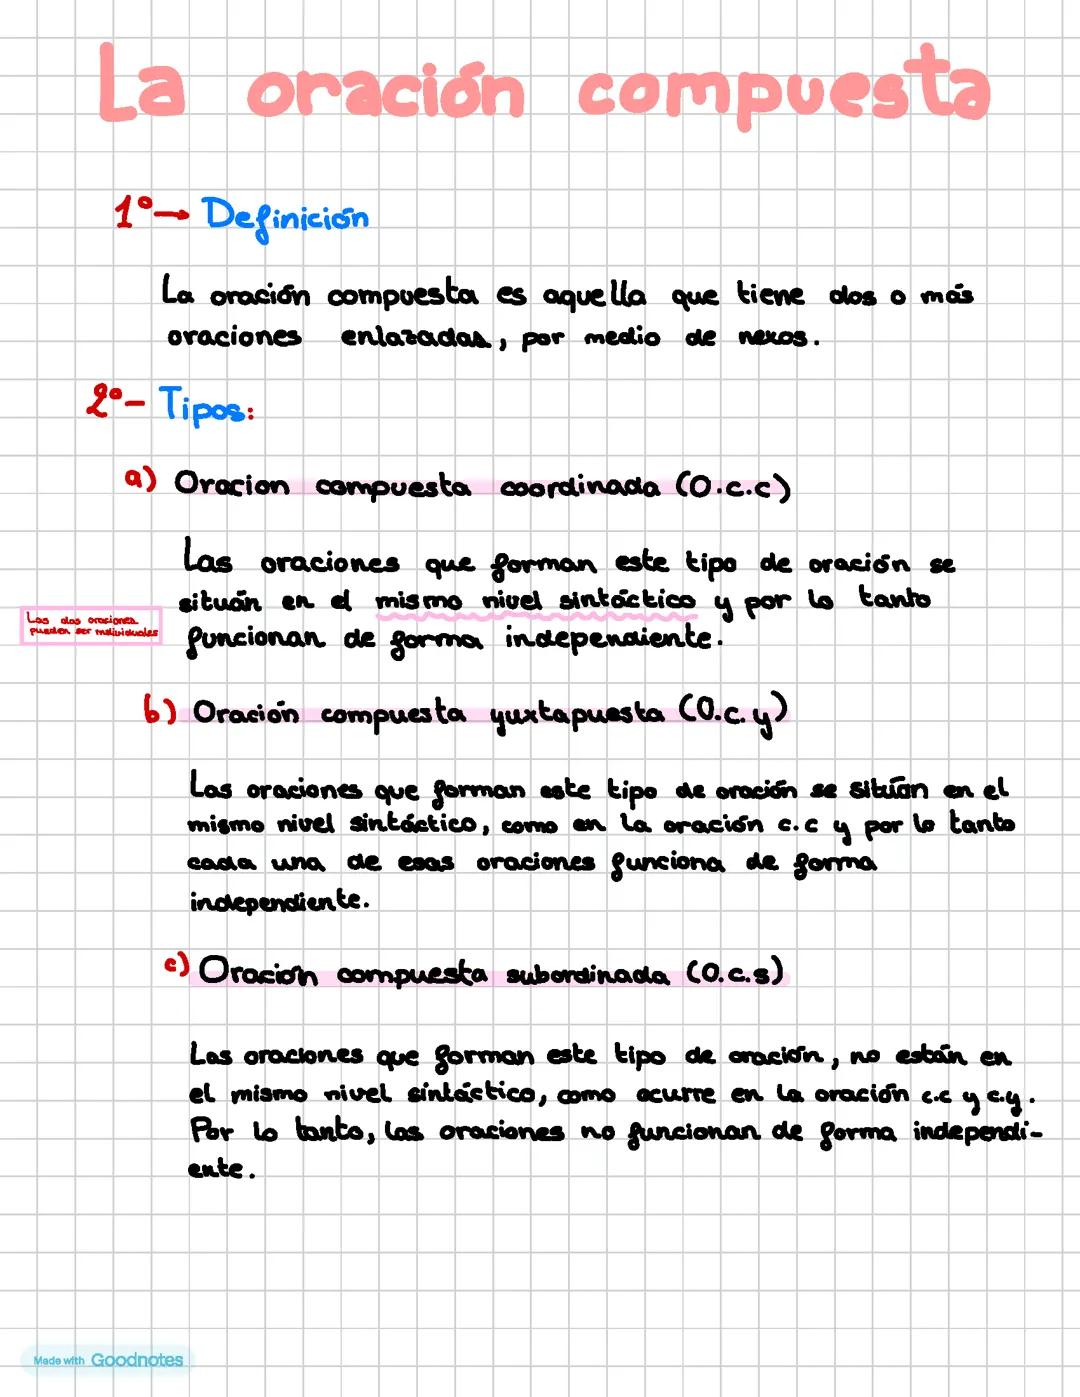 La oración compuesta
1º→ Definición
La oración compuesta es aquella que tiene dos o más
oraciones enlazadas, por medio de nexos.
2º- Tipos:
a) Oracion compuesta coordinada (O.c.c)
Las oraciones que forman este tipo de oración se
sitúan en el mismo nivel sintáctico y por lo tanto
funcionan de forma independiente.
Las dos oraciones
pueden ser individuales
b) Oración compuesta yuxtapuesta (O.c.y)
Las oraciones que forman este tipo de oración se sitúan en el
mismo nivel sintáctico, como en la oración c.c y por lo tanto
cada una de esas oraciones funciona de forma
independiente.
c) Oración compuesta subordinada (O.c.s)
Las oraciones que forman este tipo de oración, no están en
el mismo nivel sintáctico, como ocurre en la oración c.c y c.y.
Por lo tanto, las oraciones no funcionan de forma independi-
ente.
Made with Goodnotes